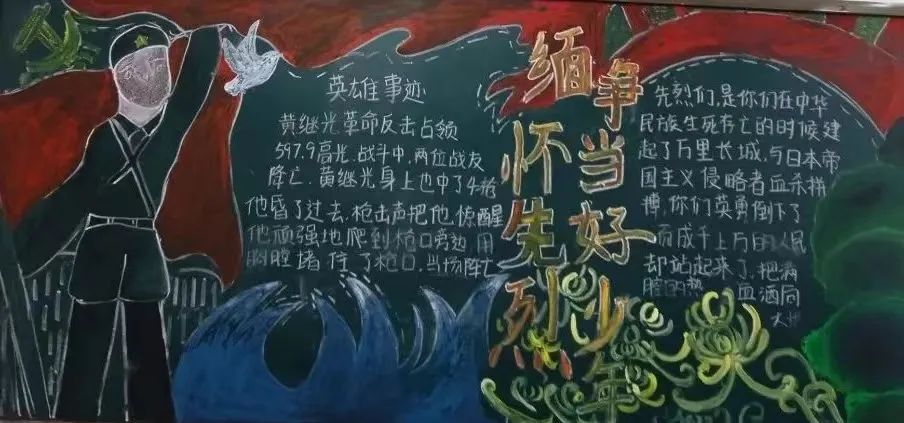 英雄事迹
黄继光革命反击占领
597.9高光.战斗中,两位战友
降亡.黄继光身上也中了4枪
他昏了过去,枪击声把他,惊醒
他顽强地爬到枪口旁边.用
胸腔堵住了枪口,当场阵亡
缅怀先烈
争当好少年
先烈们,是你们在中华
民族生死存亡的时候建
起了万里长城,与日本帝
国主义侵略者血杀拼
搏,你们英勇倒下了
而成千上万的人民
却站起来了,把满
腔的热血洒向
大地